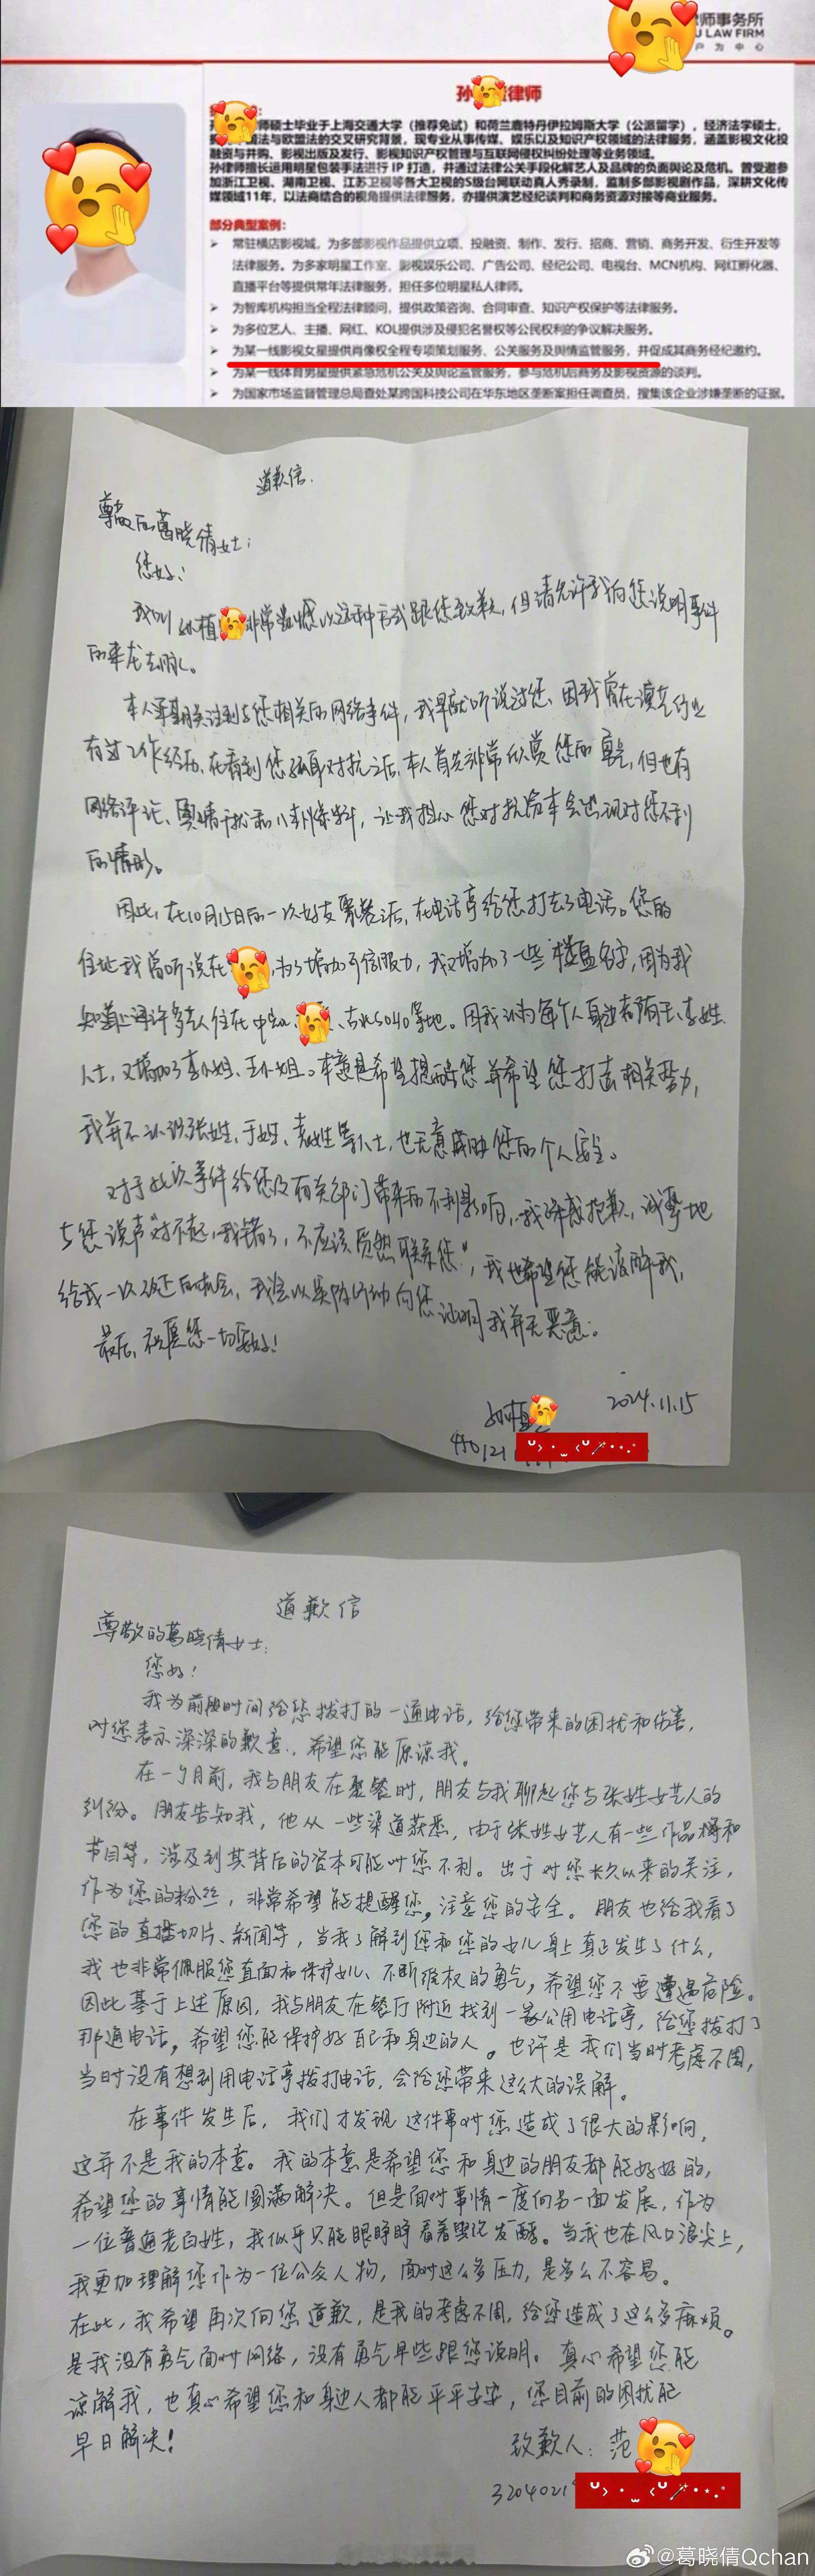 律师事务所
U LAW FIRM
户 为 中 心
孙 律师
师硕士毕业于上海交通大学（推荐免试）和荷兰鹿特丹伊拉姆斯大学（公派留学），经济法学硕士，
法与欧盟法的交叉研究背景，现专业从事传媒、娱乐以及知识产权领域的法律服务，涵盖影视文化投
融资与并购、影视出版及发行、影视知识产权管理与互联网侵权纠纷处理等业务领域。
孙律师擅长运用明星包装手法进行 IP 打造，并通过法律公关手段化解艺人及品牌的负面舆论及危机。曾受邀参
加浙江卫视、湖南卫视、江苏卫视等各大卫视的S级台网联动真人秀录制，监制多部影视剧作品，深耕文化传
媒领域11年，以法商结合的视角提供法律服务，亦提供演艺经纪谈判和商务资源对接等商业服务。
部分典型案例：
➢ 常驻横店影视城，为多部影视作品提供立项、投融资、制作、发行、招商、营销、商务开发、衍生开发等
法律服务。为多家明星工作室、影视娱乐公司、广告公司、经纪公司、电视台、MCN机构、网红孵化器、
直播平台等提供常年法律服务，担任多位明星私人律师。
➢ 为智库机构担当全程法律顾问，提供政策咨询、合同审查、知识产权保护等法律服务。
➢ 为多位艺人、主播、网红、KOL提供涉及侵犯名誉权等公民权利的争议解决服务。
➢ 为某一线影视女星提供肖像权全程专项策划服务、公关服务及舆情监管服务，并促成其商务经纪邀约。
➢ 为某一线体育男星提供紧急危机公关及舆论监管服务，参与危机后商务及影视资源的谈判。
➢ 为国家市场监督管理总局查处某跨国科技公司在华东地区垄断案担任调查员，搜集该企业涉嫌垄断的证据。
道歉信.
尊敬的葛晓倩女士：
您好！
我叫孙植 非常遗憾以这种方式跟您致歉，但请允许我向您说明事件
的来龙去脉。
本人早期关注到与您相关的网络事件，我早就听说过您、因我曾在演艺行业
有过工作经历、在看到您孤身对抗之后，本人首先非常欣赏您的勇气，但也有
网络评论、舆情干扰和八卦爆料，让我担心您对抗资本会出现对您不利
的情形。
因此，在10月15日的一次好友聚餐之后，在电话亭给您打去了电话。您的
住址我曾听说在 ，为了增加可信服力，我又增加了一些楼盘名字，因为我
知道上海许多艺人住在中 、 、古北SOHO等地。因我认为每个人身边都有王、李姓
人士，又增加了李小姐、王小姐。本意是希望提醒您并希望您打击相关势力，
我并不认识张姓、于姓、袁姓等人士，也无意威胁您的个人安全。
对于此次事件给您及有关部门带来的不利影响，我深感抱歉，诚挚地
与您说声“对不起，我错了，不应该贸然联系您”，我也希望您能谅解我，
给我一次改正的机会，我会以实际行动向您证明我并无恶意。
最后，祝愿您一切安好！
孙植
2024.11.15
道歉信
尊敬的葛晓倩女士：
您好！
我为前段时间给您拨打的一通电话，给您带来的困扰和伤害，
对您表示深深的歉意，希望您能原谅我。
在一个月前，我与朋友在聚餐时，朋友与我聊起您与张姓女艺人的
纠纷。朋友告知我，他从一些渠道获悉，由于张姓女艺人有一些作品播和
节目等，涉及到其背后的资本可能对您不利。出于对您长久以来的关注，
作为您的粉丝，非常希望能提醒您，注意您的安全。朋友也给我看了
您的直播切片、新闻等，当我了解到您和您的女儿身上真正发生了什么，
我也非常佩服您直面和保护女儿、不断维权的勇气，希望您不要遭遇危险。
因此基于上述原因，我与朋友在餐厅附近找到一家公用电话亭，给您拨打了
那通电话，希望您能保护好自己和身边的人。也许是我们当时考虑不周，
当时没有想到用电话亭拨打电话，会给您带来这么大的误解。
在事件发生后，我们才发现这件事对您造成了很大的影响，
这并不是我的本意。我的本意是希望您和身边的朋友都能好好的，
希望您的事情能圆满解决。但是面对事情一度向另一面发展，作为
一位普通老百姓，我似乎只能眼睁睁看着舆论发酵。当我也在风口浪尖上，
我更加理解您作为一位公众人物，面对这么多压力，是多么不容易。
在此，我希望再次向您道歉，是我的考虑不周，给您造成了这么多麻烦。
是我没有勇气面对网络，没有勇气早些跟您说明。真心希望您能
谅解我，也真心希望您和身边人都能平平安安，您目前的困扰能
早日解决！
致歉人：范
3204021
@葛晓倩Qchan